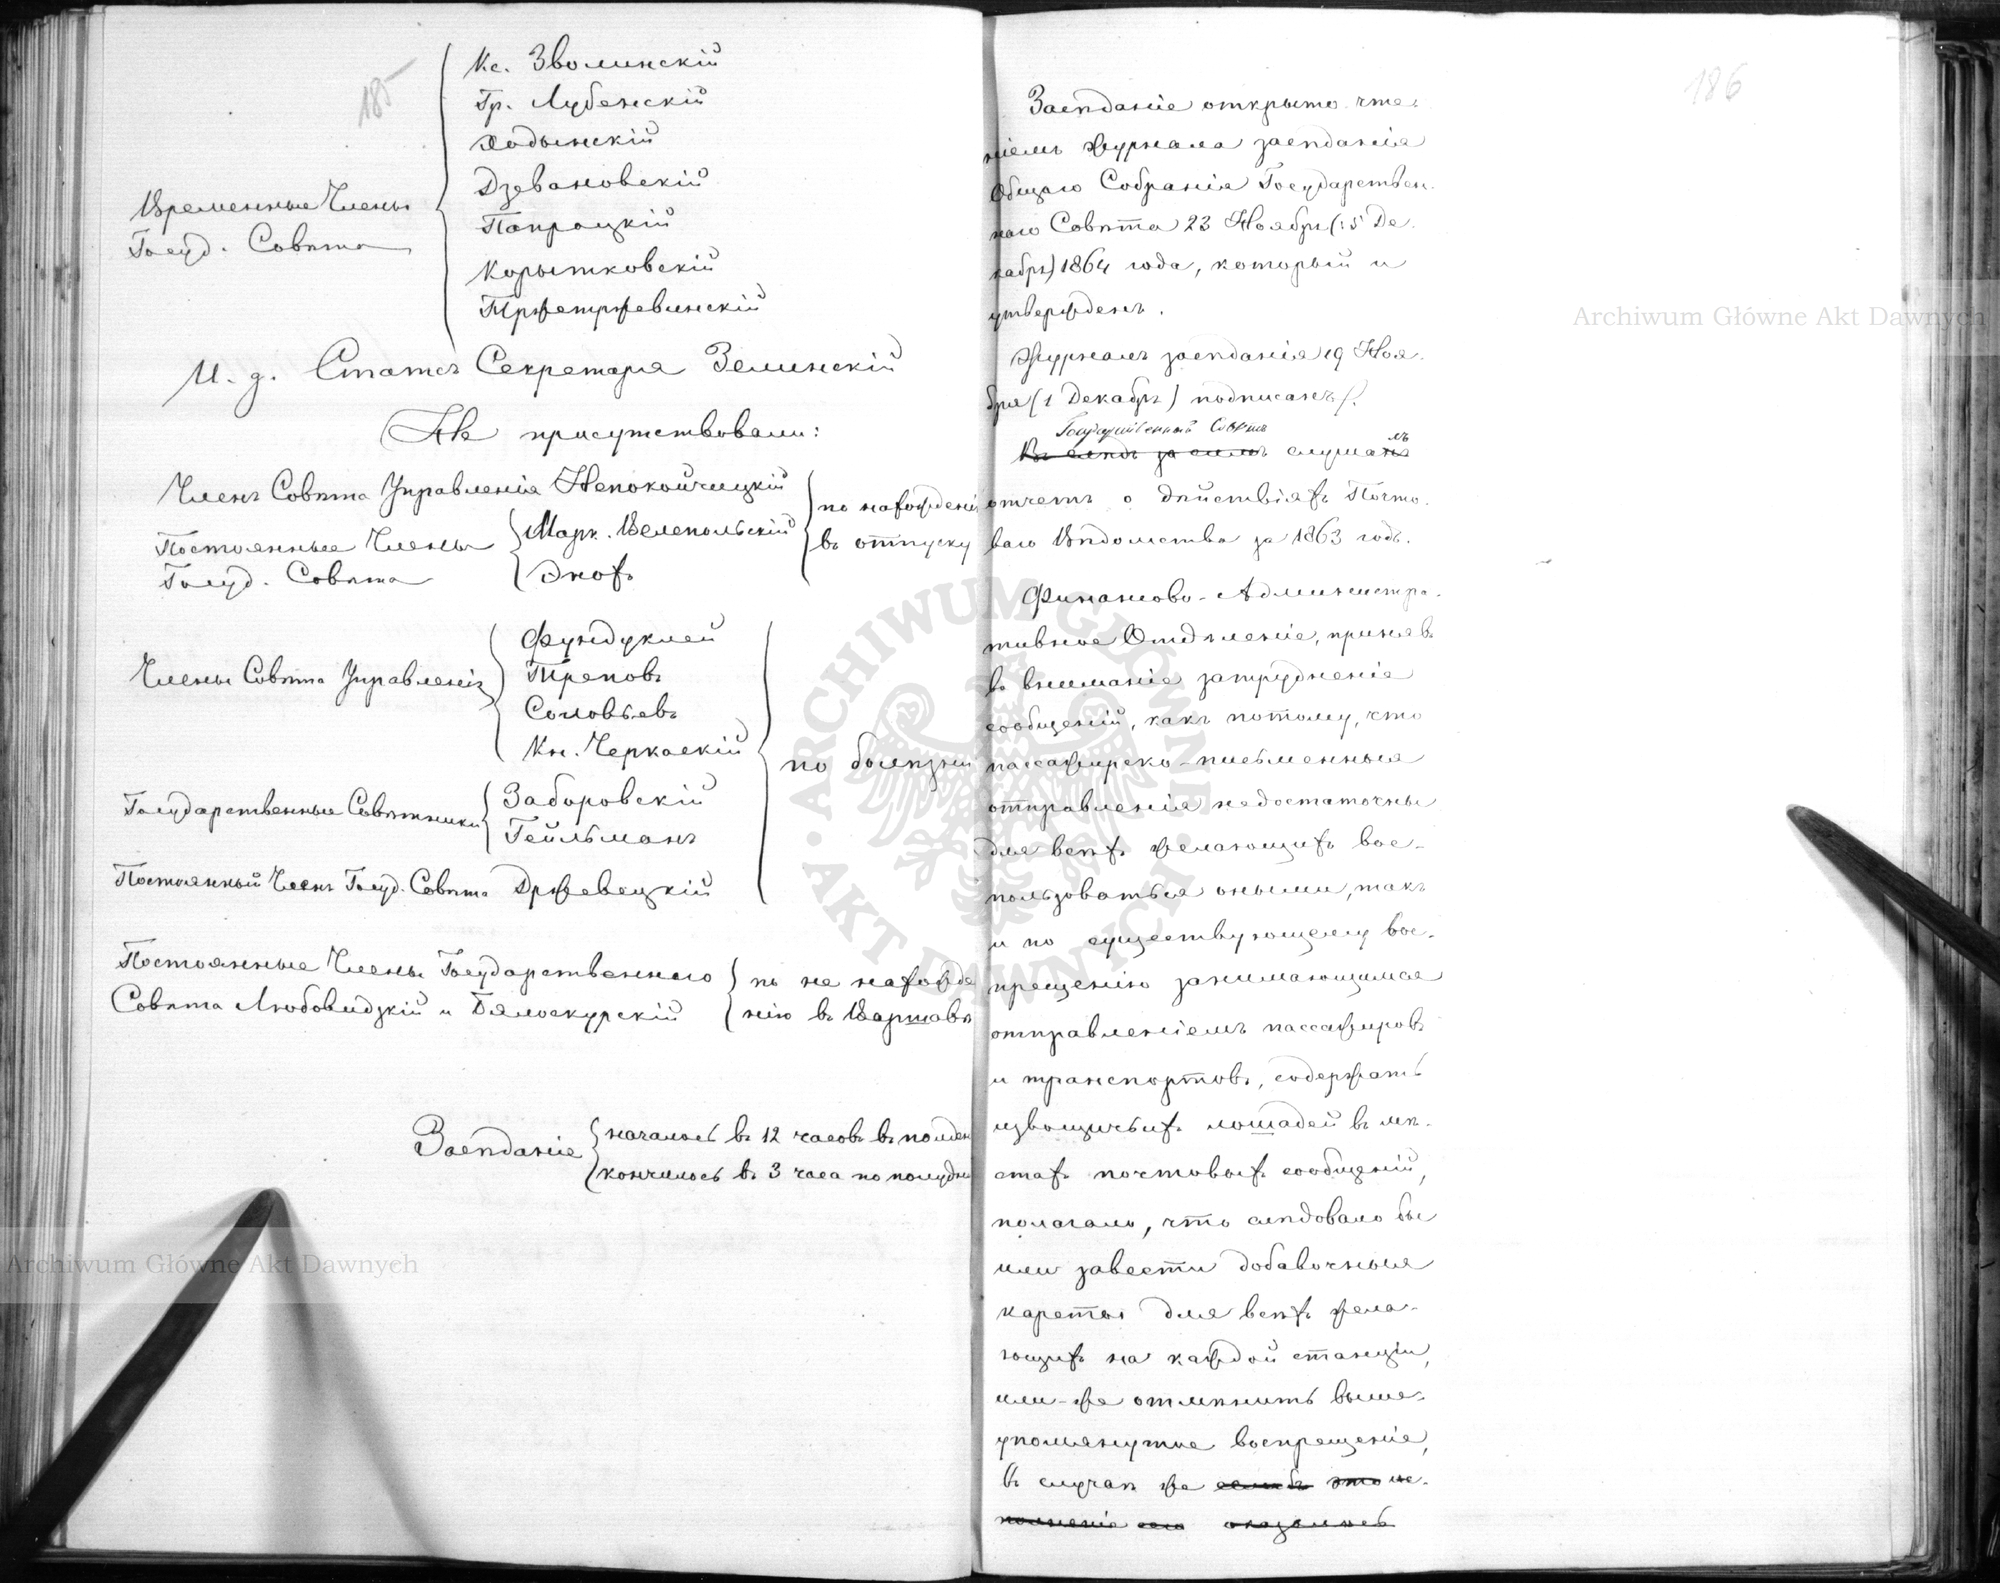 185
Временные Члены
Госуд. Совѣта
Кс. Зволинскій
Гр. Лубенскій
Ходынскій
Дзевановскій
Папроцкій
Корытковскій
Тржетржевинскій
И. д. Статсъ Секретаря Зелинскій
Не присутствовали:
Членъ Совѣта Управленія Непокойчицкій
Постоянные Члены
Госуд. Совѣта
Марк. Велепольскій
Энохъ
по нахожденію
въ отпуску
Члены Совѣта Управленія
Фундуклей
Треповъ
Соловьевъ
Кн. Черкаскій
Государственные Совѣтники
Заборовскій
Гейльманъ
Постоянный Членъ Госуд. Совѣта Држевецкій
по болѣзни
Постоянные Члены Государственнаго
Совѣта Любовидзкій и Бялоскурскій
по не нахожде
нію въ Варшавѣ
Засѣданіе
началось въ 12 часовъ въ полдень
кончилось въ 3 часа по полудни
186
Засѣданіе открыто чте-
ніемъ Журнала засѣданія
Общаго Собранія Государствен-
наго Совѣта 23 Ноября (: 5 Де-
кабря) 1864 года, который и
утвержденъ.
Журналъ засѣданія 19 Ноя-
бря (1 Декабря) подписанъ.
Государственный Совѣтъ
Въ слѣдъ за симъ слушалъ
отчетъ о дѣйствіяхъ Почто-
ваго Вѣдомства за 1863 годъ.
Финансово-Администра-
тивное Отдѣленіе, принявъ
въ вниманіе затрудненіе
сообщеній, какъ потому, что
пассажирско-письменныя
отправленія недостаточны
для всѣхъ желающихъ вос-
пользоваться оными, такъ
и по существующему вос-
прещенію занимающимся
отправленіемъ пассажировъ
и транспортовъ, содержать
извощичьихъ лошадей въ мѣ-
стахъ почтовыхъ сообщеній,
полагало, что слѣдовало бы
или завести добавочныя
кареты для всѣхъ жела-
ющихъ на каждой станціи,
или-же отмѣнить выше-
упомянутое воспрещеніе,
въ случаѣ же если бъ это ис-
полненіе его оказалось
Archiwum Główne Akt Dawnych
Archiwum Główne Akt Dawnych
ARCHIWUM GŁÓWNE · AKT DAWNYCH ·